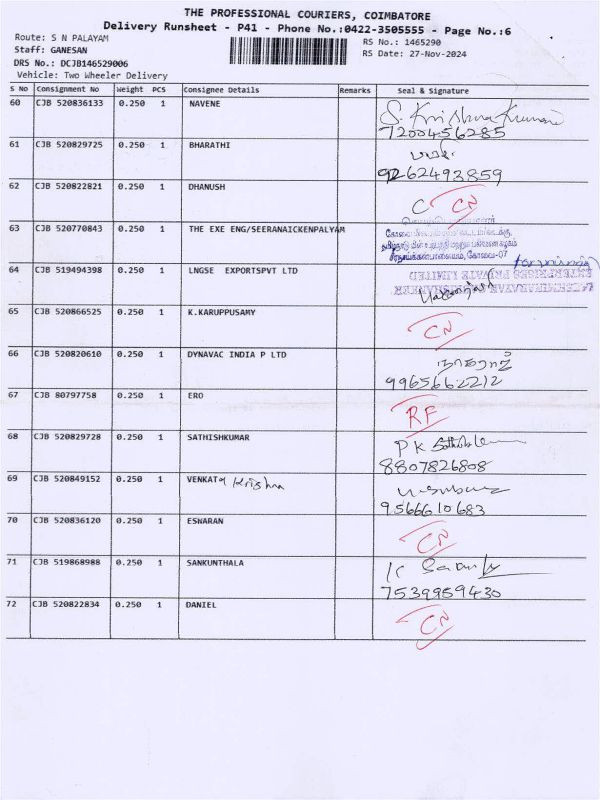 THE PROFESSIONAL COURIERS, COIMBATORE
Delivery Runsheet - P41 - Phone No.:0422-3505555 - Page No.:6
Route: S N PALAYAM RS No.: 1465290
Staff: GANESAN RS Date: 27-Nov-2024
DRS No.: DCJB146529006
Vehicle: Two Wheeler Delivery
S No Consignment No Weight PCS Consignee Details Remarks Seal & Signature
60 CJB 520836133 0.250 1 NAVENE S. Krishna Kumar
7200456285
61 CJB 520829725 0.250 1 BHARATHI
9262493859
62 CJB 520822821 0.250 1 DHANUSH C CN
63 CJB 520770843 0.250 1 THE EXE ENG/SEERANAICKENPALYAM
64 CJB 519494398 0.250 1 LNGSE EXPORTSPVT LTD
ENTERPRISES PRIVATE LIMITED
65 CJB 520866525 0.250 1 K.KARUPPUSAMY CN
66 CJB 520820610 0.250 1 DYNAVAC INDIA P LTD நாகராஜ்
9965662212
67 CJB 80797758 0.250 1 ERO RF
68 CJB 520829728 0.250 1 SATHISHKUMAR PK
8807826808
69 CJB 520849152 0.250 1 VENKATa Krishna
9566610683
70 CJB 520836120 0.250 1 ESWARAN CN
71 CJB 519868988 0.250 1 SANKUNTHALA K
7539959430
72 CJB 520822834 0.250 1 DANIEL CN